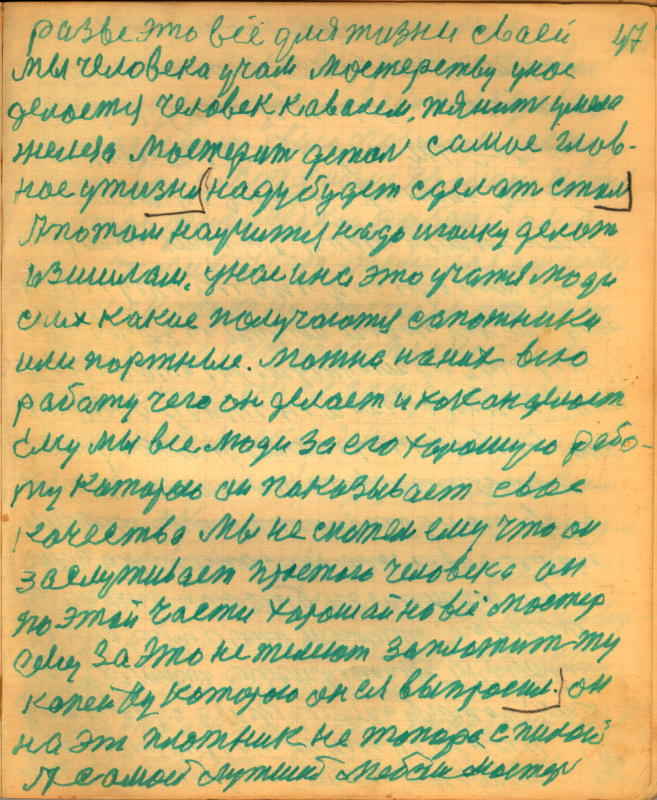 разве это всё для жизни сваей 47
мы человека учам мостерству унас
делоется человек кавалем, тянит умела
железа мостерит детал самое глов-
ное ужизни надубудет сделат стал
Апотом научится надо иголку делот
изшилам, унас инс это учатся люди
сних какие получаются сапожники
или портные. Можна наних всю
работу чего он делает и как он делоет
ему мы все люди за его хорошую рабо-
ту которою он паказывает свае
качество мы не скажем ему что он
заслуживает простого человека он
по этой части хорошай на всё мостер
ему за это не желеют заплотит ту
копейку которою он ея выпросил. он
на эт плотник не топора с пилой
А самой лутший мебели мостер